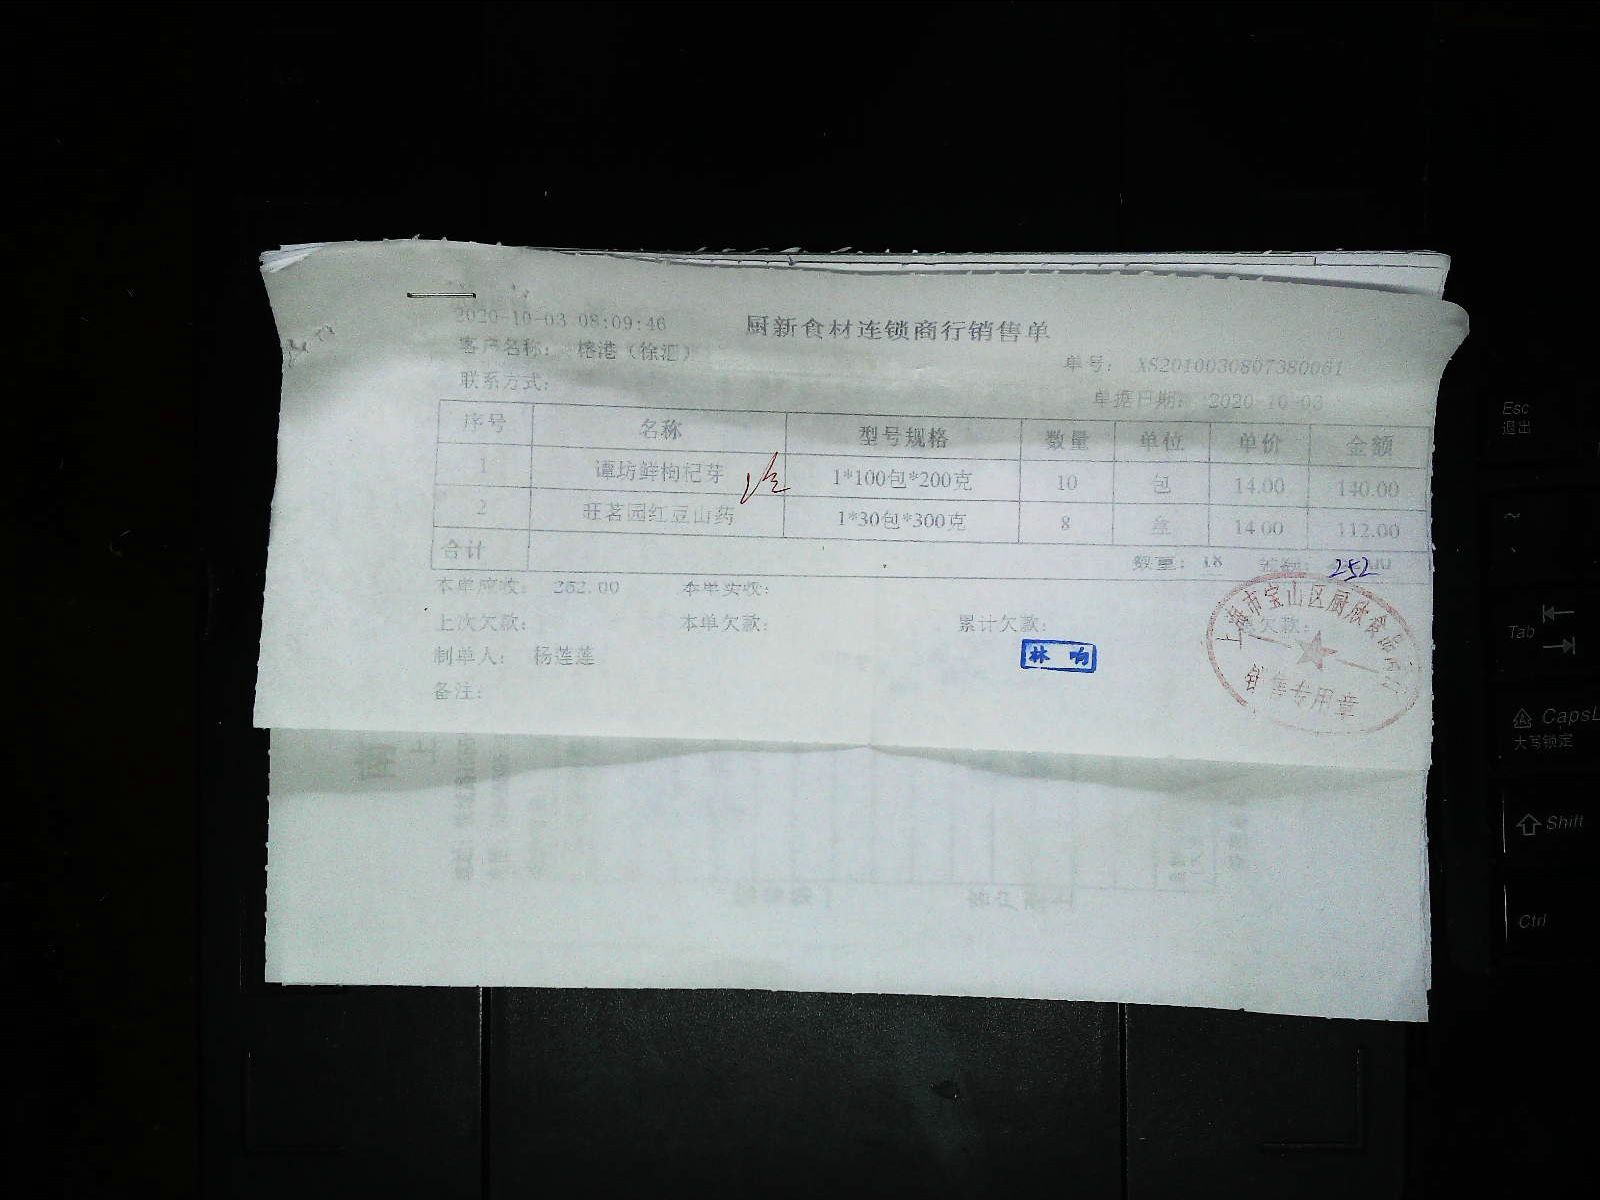 2020-10-03 08:09:46
厨新食材连锁商行销售单
客户名称: 榕港(徐泗)
单号: XS2010030807380061
联系方式:
单据日期: 2020-10-03
序号 名称 型号规格 数量 单位 单价 金额
1 谭坊鲜枸杞芽 1*100包*200克 10 包 14.00 140.00
2 旺茗园红豆山药 1*30包*300克 8 盒 14.00 112.00
合计 数量: 18 252
本单应收: 252.00 本单实收:
上次欠款: 本单欠款: 累计欠款:
制单人: 杨莲莲
林响
备注:
上海市宝山区厨欣食品商行
销售专用章
Esc
退出
Tab
CapsL
大写锁定
Shift
Ctrl